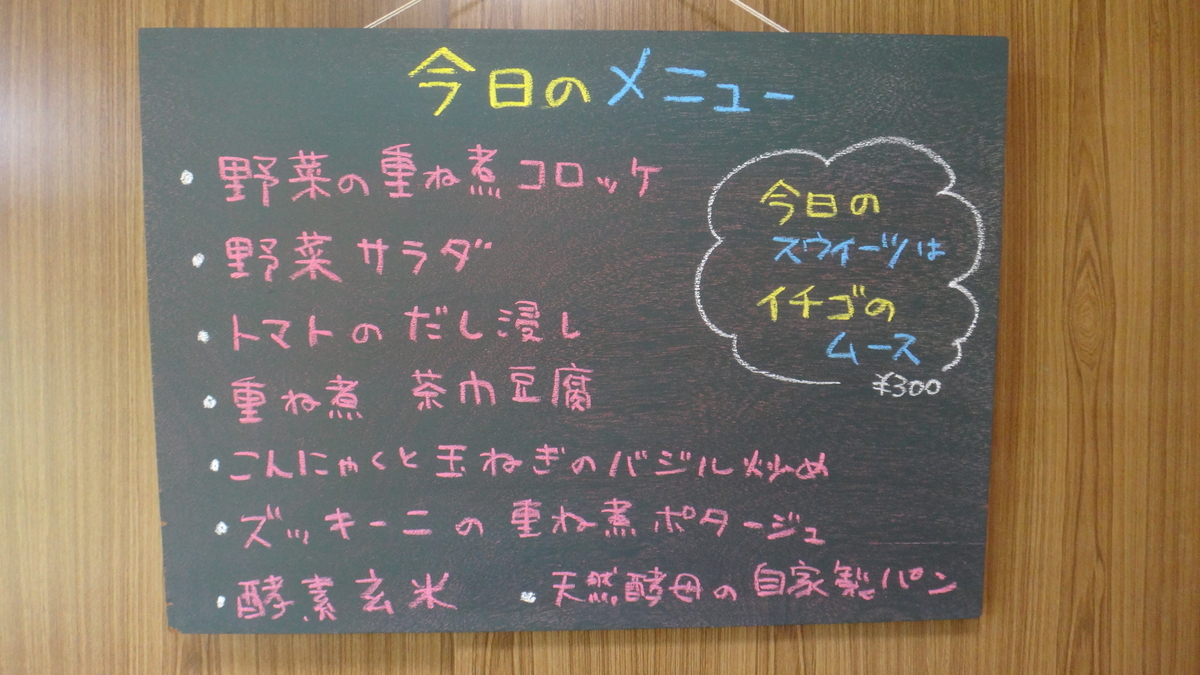 今日のメニュー
・野菜の重ね煮コロッケ
・野菜サラダ
・トマトのだし浸し
・重ね煮 茶巾豆腐
・こんにゃくと玉ねぎのバジル炒め
・ズッキーニの重ね煮ポタージュ
・酵素玄米 ・天然酵母の自家製パン
今日の
スウィーツは
イチゴの
ムース
¥300